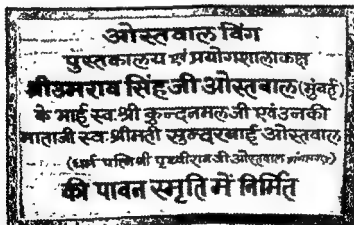 ओस्तवाल विंग
पुस्तकालय एवं प्रयोगशाला कक्ष
श्री उमराव सिंह जी ओस्तवाल (मुंबई)
के भाई स्व. श्री कुन्दनमल जी एवं उनकी
माताजी स्व. श्रीमती सुन्दरबाई ओस्तवाल
(धर्म पत्नि श्री पृथ्वीराज जी ओस्तवाल
की पावन स्मृति में निर्मित